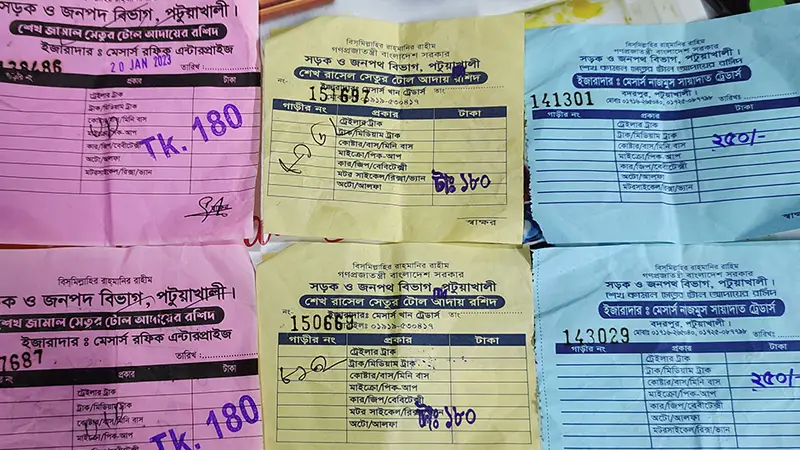 সড়ক ও জনপদ বিভাগ, পটুয়াখালী।
শেখ জামাল সেতুর টোল আদায়ের রশিদ
ইজারাদার ঃ মেসার্স রফিক এন্টারপ্রাইজ
20 JAN 2023
তারিখ :
প্রকার
টাকা
ট্রেইলার ট্রাক
ট্রাক/মিডিয়াম ট্রাক
কোষ্টার/বাস/মিনি বাস
মাইক্রো/পিক-আপ
কার/জিপ/বেবীটেক্সী
অটো/আলফা
মটর সাইকেল/রিক্সা/ভ্যান
Tk. 180
বিসমিল্লাহির রাহমানির রাহীম
গণপ্রজাতন্ত্রী বাংলাদেশ সরকার
সড়ক ও জনপথ বিভাগ, পটুয়াখালী
শেখ রাসেল সেতুর টোল আদায় রশিদ
নং-
157697
খান ট্রেডার্স
তাং
০১৯১৯-৫৩০৪১৭
গাড়ীর নং
প্রকার
টাকা
ট্রেইলার ট্রাক
ট্রাক/মিডিয়াম ট্রাক
কোষ্টার/বাস/মিনি বাস
মাইক্রো/পিক-আপ
কার/জিপ/বেবিটেক্সী
মটর সাইকেল/রিক্সা/ভ্যান
অটো/আলফা
টাঃ ১৮০
স্বাক্ষর
বিসমিল্লাহির রাহমানির রাহীম
গণপ্রজাতন্ত্রী বাংলাদেশ সরকার
সড়ক ও জনপথ বিভাগ, পটুয়াখালী
ইজারাদার ঃ মেসার্স নাজমুস সায়াদাত ট্রেডার্স
বদরপুর, পটুয়াখালী।
141301
গাড়ীর নং
প্রকার
টাকা
ট্রেইলার ট্রাক
ট্রাক/মিডিয়াম ট্রাক
কোষ্টার/বাস/মিনি বাস
মাইক্রো/পিক-আপ
কার/জিপ/বেবীটেক্সী
অটো/আলফা
মটরসাইকেল/রিক্সা/ভ্যান
২৫০/-
বিসমিল্লাহির রাহমানির রাহীম
ক ও জনপদ বিভাগ, পটুয়াখালী।
শেখ জামাল সেতুর টোল আদায়ের রশিদ
ইজারাদার ঃ মেসার্স রফিক এন্টারপ্রাইজ
7687
তারিখ :
প্রকার
টাকা
ট্রেইলার ট্রাক
ট্রাক/মিডিয়াম ট্রাক
কোষ্টার/বাস/মিনি বাস
মাইক্রো/পিক-আপ
Tk. 180
বিসমিল্লাহির রাহমানির রাহীম
গণপ্রজাতন্ত্রী বাংলাদেশ সরকার
সড়ক ও জনপথ বিভাগ, পটুয়াখালী
শেখ রাসেল সেতুর টোল আদায় রশিদ
নং-
মেসার্স খান ট্রেডার্স
তাং
০১৯১৯-৫৩০৪১৭
গাড়ীর নং
প্রকার
টাকা
ট্রেইলার ট্রাক
ট্রাক/মিডিয়াম ট্রাক
কোষ্টার/বাস/মিনি বাস
মাইক্রো/পিক-আপ
কার/জিপ/বেবিটেক্সী
মটর সাইকেল/রিক্সা/ভ্যান
অটো/আলফা
টাঃ ১৮০
বিসমিল্লাহির রাহমানির রাহীম
গণপ্রজাতন্ত্রী বাংলাদেশ সরকার
সড়ক ও জনপথ বিভাগ, পটুয়াখালী।
ইজারাদার ঃ মেসার্স নাজমুস সায়াদাত ট্রেডার্স
বদরপুর, পটুয়াখালী।
143029
গাড়ীর নং
প্রকার
টাকা
ট্রেইলার ট্রাক
ট্রাক/মিডিয়াম ট্রাক
কোষ্টার/বাস/মিনি বাস
মাইক্রো/পিক-আপ
কার/জিপ/বেবীটেক্সী
অটো/আলফা
মটরসাইকেল/রিক্সা/ভ্যান
২৫০/-